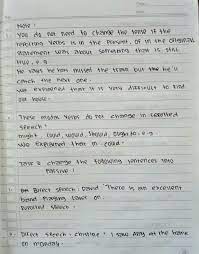 Note :
You do not need to change the tense if the
reporting verbs is in the present, of in the original
statement was about something that is still
true, e.g
He says he has missed the train but the he'll
catch the next one.
We explained that it is very difficult to find
our house.
These modal verbs do not change in reported
speech :
might, could, would, should, ought to, e.g
We explained that in could.
Task 2 change the following sentences into
passive !
Direct speech : David "There is an excellent
band playing later on.
Direct speech : Christine " I saw Amy at the bank
on monday.